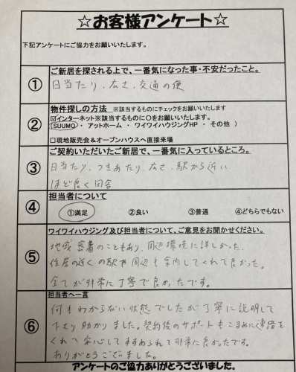 ☆お客様アンケート☆
下記アンケートにご協力をお願いいたします。
① ご新居を探される上で、一番気になった事・不安だったこと。
日当たり、広さ、交通の便
② 物件探しの方法 ※該当するものにチェックをお願いいたします
☑インターネット※該当するものに○をお願いいたします。
(SUUMO ・ アットホーム ・ ワイワイハウジングHP ・ その他 )
□現地販売会＆オープンハウスへ直接来場
③ ご契約いただいたご新居で、一番気に入っているところ。
日当たり、つきあたり、広さ、駅から近い
ほど良く田舎
④ 担当者について
①満足 ②良い ③普通 ④どちらでもない
⑤ ワイワイハウジング及び担当者について、ご意見をお聞かせください。
地域密着のこともあり、周辺環境に詳しかった。
住居の近くの駅や周辺も案内してくれて良かった。
全てが非常に丁寧で良かったです。
⑥ 担当者へ一言
何もわからない状態でしたが丁寧に説明して
下さり助かりました。契約後のサポートもこまめに連絡を
くれて
非常に良かったです。
ありがとうございました。
アンケートのご協力ありがとうございました。